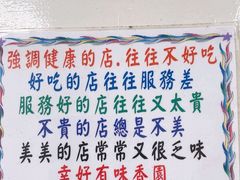 強調健康的店.往往不好吃
好吃的店往往服務差
服務好的店往往又太貴
不貴的店總是不美
美美的店常常又很乏味
幸好有味香園